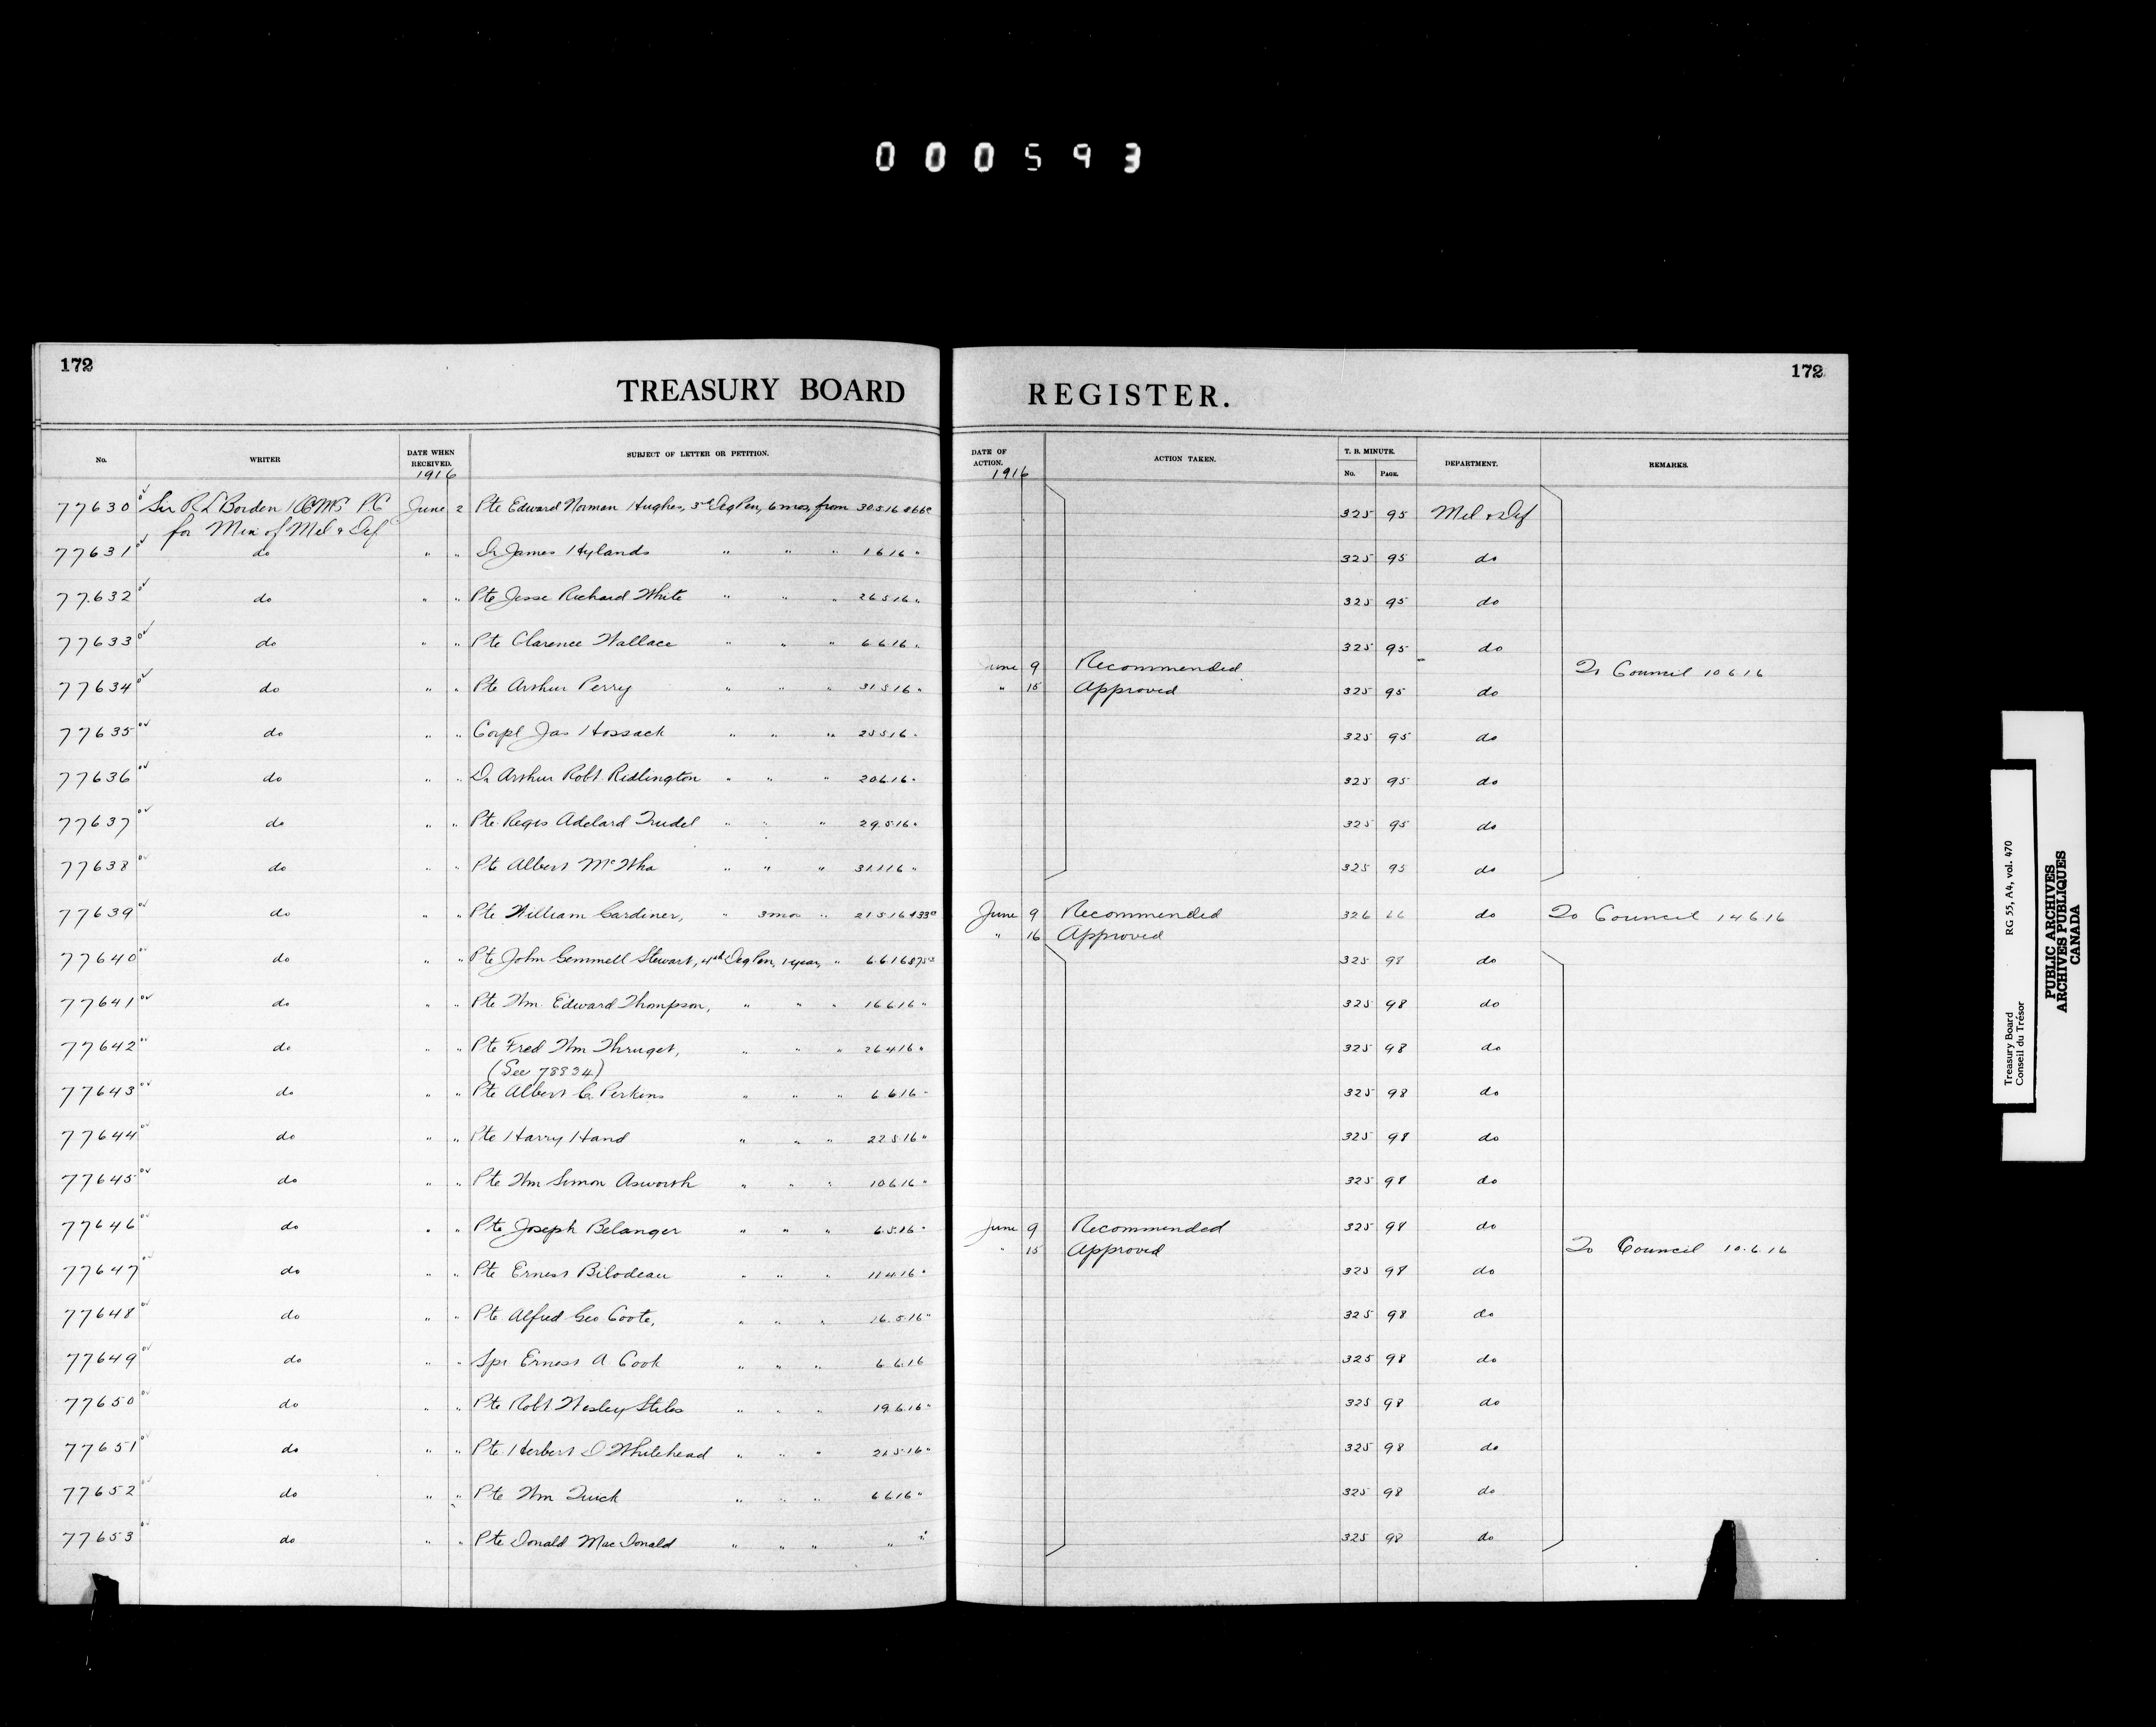 000593
172
172
TREASURY BOARD REGISTER.
No. WRITER DATE WHEN RECEIVED. SUBJECT OF LETTER OR PETITION. DATE OF ACTION. ACTION TAKEN. T. B. MINUTE. No. PAGE. DEPARTMENT. REMARKS.
1916 1916
77630 Sir R L Borden PC June 2 Pte Edward Norman Hughes, 3rd Deg Pen, 6 mos, from 30.5.16 325 95 Mil & Def
for Min of Mil & Def
77631 do " " Dr James Hylands " " " 1.6.16 " 325 95 do
77632 do " " Pte Jesse Richard White " " " 26.5.16 " 325 95 do
77633 do " " Pte Clarence Wallace " " " 6.6.16 " 325 95 do
June 9 Recommended To Council 10 6 16
77634 do " " Pte Arthur Perry " " " 31.5.16 " " 15 Approved 325 95 do
77635 do " " Corpl Jas Hossack " " " 25.5.16 " 325 95 do
77636 do " " Dr Arthur Robt Ridlington " " " 20.6.16 " 325 95 do
77637 do " " Pte Regis Adelard Trudel " " " 29.5.16 " 325 95 do
77638 do " " Pte Albert McWha " " " 325 95 do
77639 do " " Pte William Gardiner, " 3 mos " 21.5.16 June 9 Recommended 326 66 do To Council 14 6 16
" 16 Approved
77640 do " " Pte John Gemmell Stewart, 4th Deg Pen, 1 year, " 6.6.16 325 98 do
77641 do " " Pte Wm Edward Thompson, " " " 16.6.16 " 325 98 do
77642 do " " Pte Fred Wm " " " 26.4.16 " 325 98 do
(See 78834)
77643 do " " Pte Albert C. Perkins " " " 6.6.16 " 325 98 do
77644 do " " Pte Harry Hand " " " 22.5.16 " 325 98 do
77645 do " " Pte Wm Simon Asworth " " " 10.6.16 " 325 98 do
77646 do " " Pte Joseph Belanger " " " 6.5.16 " June 9 Recommended 325 98 do
" 15 Approved To Council 10.6.16
77647 do " " Pte Ernest Bilodeau " " " 11.4.16 " 325 98 do
77648 do " " Pte Alfred Geo Coote, " " " 16.5.16 " 325 98 do
77649 do " " Spr Ernest A Cook " " " 6.6.16 325 98 do
77650 do " " Pte Robt Wesley Stiles " " " 19.6.16 " 325 98 do
77651 do " " Pte Herbert D Whitehead " " " 325 98 do
77652 do " " Pte Wm Quick " " " 6.6.16 " 325 98 do
77653 do " " Pte Donald MacDonald " " " " " 325 98 do
Treasury Board RG 55, A4, vol. 470
Conseil du Trésor
PUBLIC ARCHIVES
ARCHIVES PUBLIQUES
CANADA